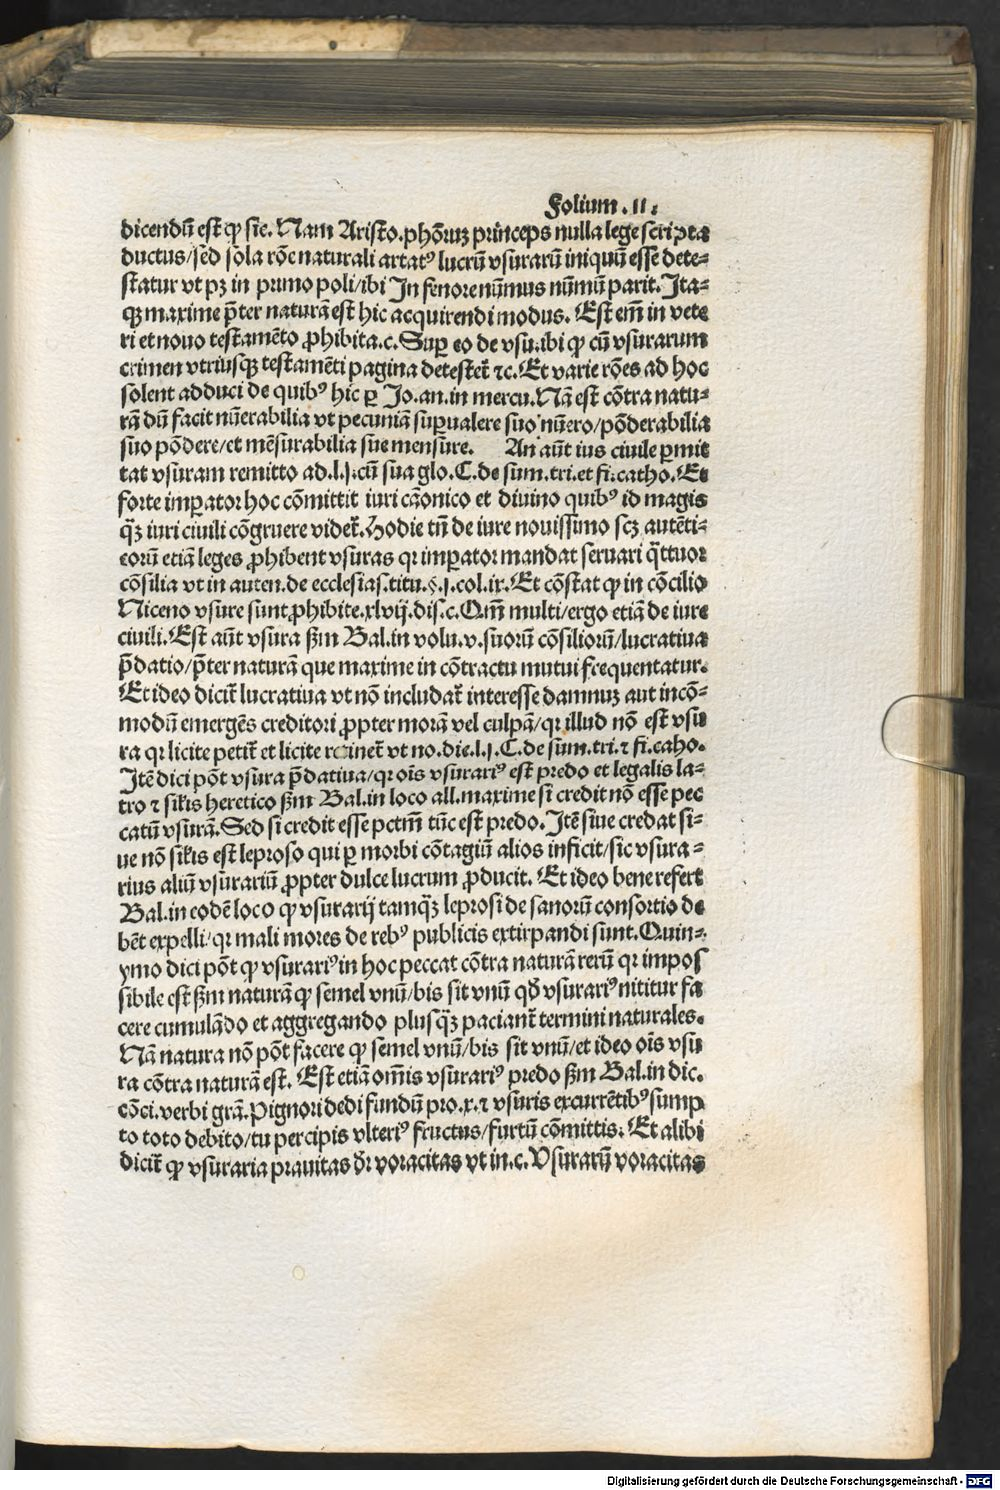 Folium .II.
dicendū est ꝙ sic. Nam Aristo. phōrum princeps nulla lege scripta
ductus/sed sola rōe naturali artatꝰ lucrū vsurarū iniquū esse dete⸗
statur vt pꝫ in primo poli/ibi In fenore nūmus nūmū parit. Ita⸗
qꝫ maxime p̄ter naturā est hic acquirendi modus. Est em̄ in vete
ri et nouo testamēto ꝓhibita.c. Suꝑ eo de vsu.ibi ꝙ cū vsurarum
crimen vtriusqꝫ testamēti pagina detestet̄ ⁊c. Et varie rōes ad hoc
solent adduci de quibꝰ hic ꝑ Jo.an.in mercu. Nā est cōtra natu⸗
rā dū facit nūerabilia vt pecuniā suꝑualere suo nūero/pōderabilia
suo pōdere/et mēsurabilia sue mensure. An aūt ius ciuile ꝑmit
tat vsuram remitto ad.l.j.cū sua glo.C.de sum.tri.et fi.catho. Et
forte imꝑator hoc cōmittit iuri canonico et diuino quibꝰ id magis
q̄ꝫ iuri ciuili cōgruere videt̄. Hodie tn̄ de iure nouissimo scꝫ autēti⸗
corū etiā leges ꝓhibent vsuras qꝛ imꝑator mandat seruari q̄ttuor
cōsilia vt in auten.de ecclesias.titu.§.j.col.ix. Et cōstat ꝙ in cōcilio
Niceno vsure sunt ꝓhibite.xlvij.dis.c.Qm̄ multi/ergo etiā de iure
ciuili. Est aūt vsura ẜm Bal.in volu.v.suorū cōsiliorū/lucratiua
p̄datio/p̄ter naturā que maxime in cōtractu mutui frequentatur.
Et ideo dicit̄ lucratiua vt nō includat̄ interesse damnuꝫ aut incō⸗
modū emergēs creditori ꝓpter morā vel culpā/qꝛ illud nō est vsu
ra qꝛ licite petit̄ et licite retinet̄ vt no.die.l.j.C.de sum.tri.⁊ fi.caho.
Itē dici pōt vsura p̄datiua/qꝛ oīs vsurariꝰ est predo et legalis la⸗
tro ⁊ sil̄is heretico ẜm Bal.in loco all.maxime si credit nō esse pec
catū vsurā. Sed si credit esse pctm̄ tūc est predo. Itē siue credat si⸗
ue nō sil̄is est leproso qui ꝑ morbi cōtagiū alios inficit/sic vsura⸗
rius aliū vsurariū ꝓpter dulce lucrum ꝓducit. Et ideo bene refert
Bal.in eodē loco ꝙ vsurarij tamq̄ꝫ leprosi de sanorū consortio de
bēt expelli/qꝛ mali mores de rebꝰ publicis extirpandi sunt. Quin⸗
ymo dici pōt ꝙ vsurariꝰ in hoc peccat cōtra naturā rerū qꝛ impos
sibile est ẜm naturā ꝙ semel vnū/bis sit vnū qđ vsurariꝰ nititur fa
cere cumulādo et aggregando plusq̄ꝫ paciant̄ termini naturales.
Nā natura nō pōt facere ꝙ semel vnū/bis sit vnū/et ideo oīs vsu
ra cōtra naturā est. Est etiā omīs vsurariꝰ predo ẜm Bal.in dic.
cōci.verbi grā. Pignori dedi fundū pro.x.⁊ vsuris excurrētibꝰ sump
to toto debito/tu percipis vlteriꝰ fructus/furtū cōmittis: Et alibi
dicit̄ ꝙ vsuraria prauitas dr̄ voracitas vt in.c. Vsurarū voracitas
Digitalisierung gefördert durch die Deutsche Forschungsgemeinschaft - DFG